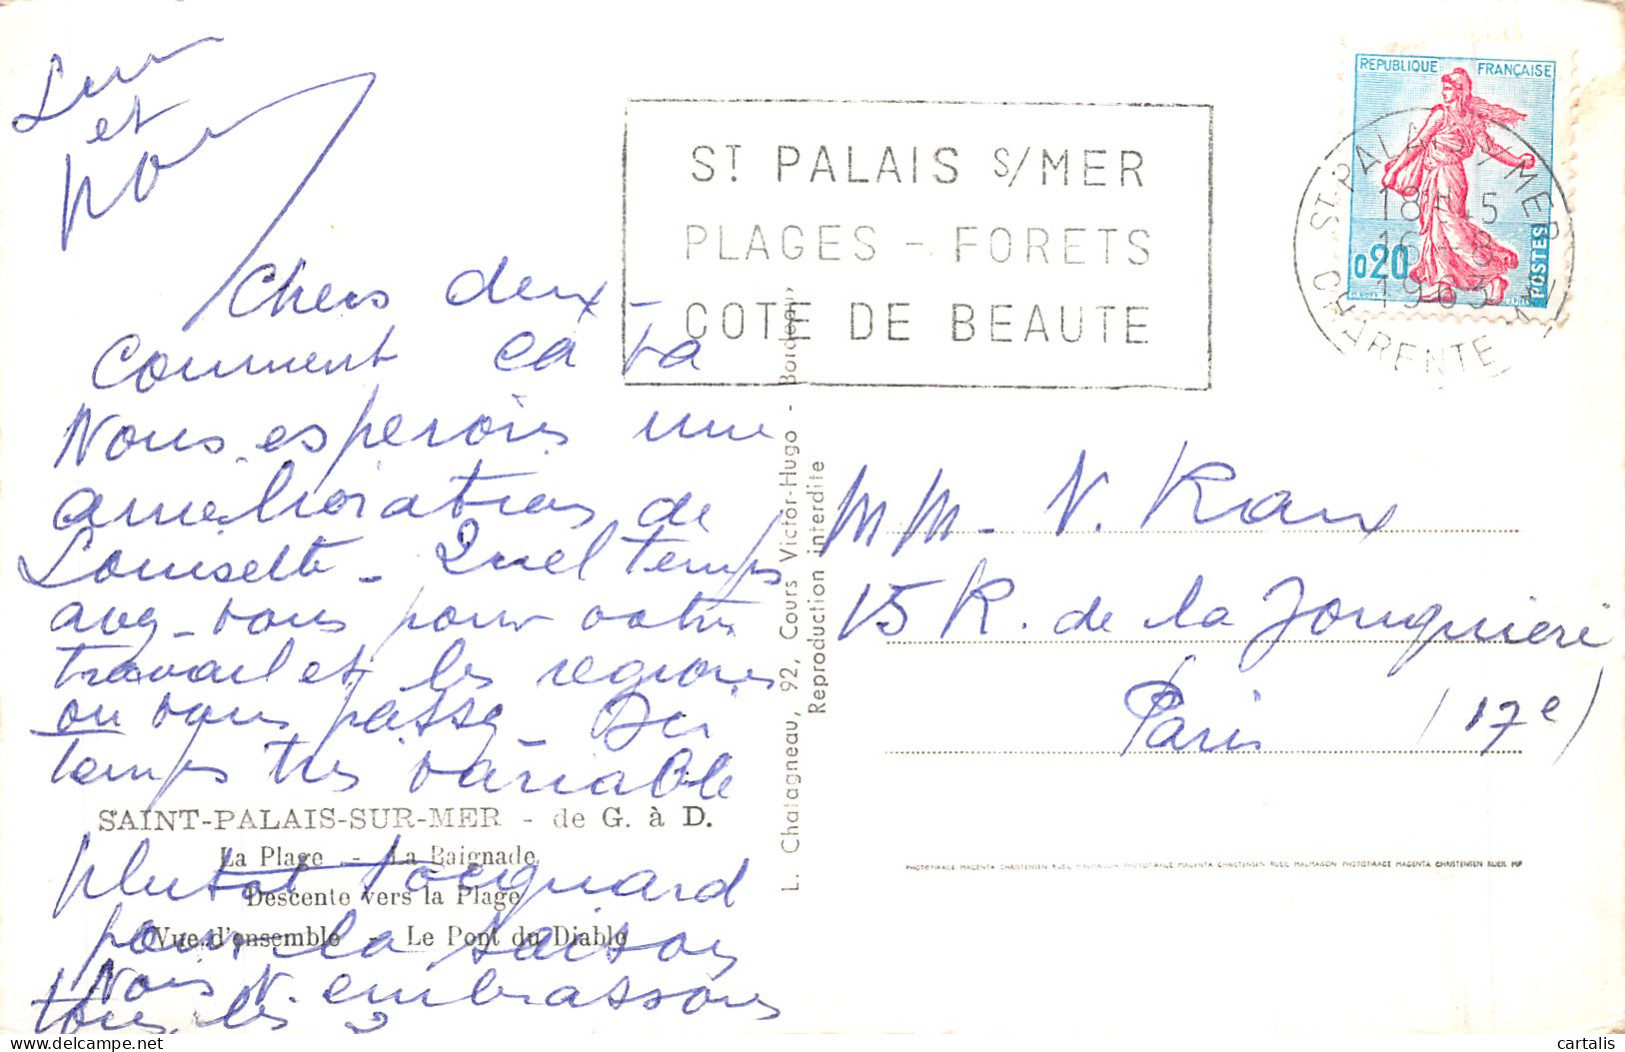 et
Chers deux -
Comment ça va
Nous esperons une
amelioration de
Louisette - Quel temps
avez-vous pour votre
travail et les regions
ou vous passez - Ici
temps tres variable
plutot toquard
pour la saison
Nous N. embrassons
tous les 2
SAINT-PALAIS-SUR-MER - de G. à D.
La Plage - La Baignade
Descente vers la Plage
Vue d'ensemble - Le Pont du Diable
L. Chatagneau, 92, Cours Victor-Hugo - Bordeaux
Reproduction interdite
ST PALAIS S/MER
PLAGES - FORETS
COTE DE BEAUTE
REPUBLIQUE FRANÇAISE
0,20
POSTES
ST-PALAIS S/MER
18H 5
16-8
1963
CHARENTE MME
MM - V. Raux
15 R. de la Jonquiere
Paris (17e)
PHOTOTIRAGE MAGENTA CHRISTENSEN RUEIL MALMAISON PHOTOTIRAGE MAGENTA CHRISTENSEN RUEIL MALMAISON PHOTOTIRAGE MAGENTA CHRISTENSEN RUEIL
cartalis